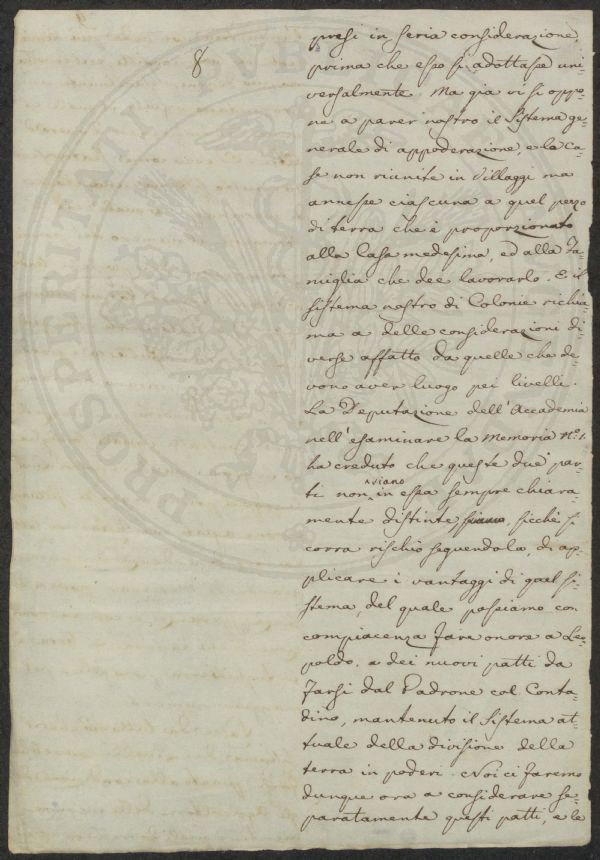 8
presi in seria considerazione,
prima che esso si adottasse uni=
versalmente. Ma già vi si oppo=
ne a parer nostro il Sistema ge=
nerale di appoderazione, e la ca=
se non riunite in Villaggi ma
annesse ciascuna a quel pezzo
di terra che è proporzionato
alla Casa medesima, ed alla Fa=
miglia che dee lavorarlo. E il
sistema nostro di Colonie richia=
ma a delle considerazioni di=
verse affatto da quelle che de=
vono aver luogo pei livelli.
La Deputazione dell'Accademia
nell'esaminare la Memoria N.º 1.
ha creduto che queste due par=
ti non siano in essa sempre chiara=
mente distinte siano, sicchè si
corra rischio seguendola, di ap=
plicare i vantaggi di quel si=
stema, del quale possiamo con
compiacenza fare onore a Leo=
poldo, a dei nuovi patti da
farsi dal Padrone col Conta=
dino, mantenuto il Sistema at=
tuale della divisione della
terra in poderi. Noi ci faremo
dunque ora a considerare se=
paratamente questi patti, e le
PROSPERITATI PUB